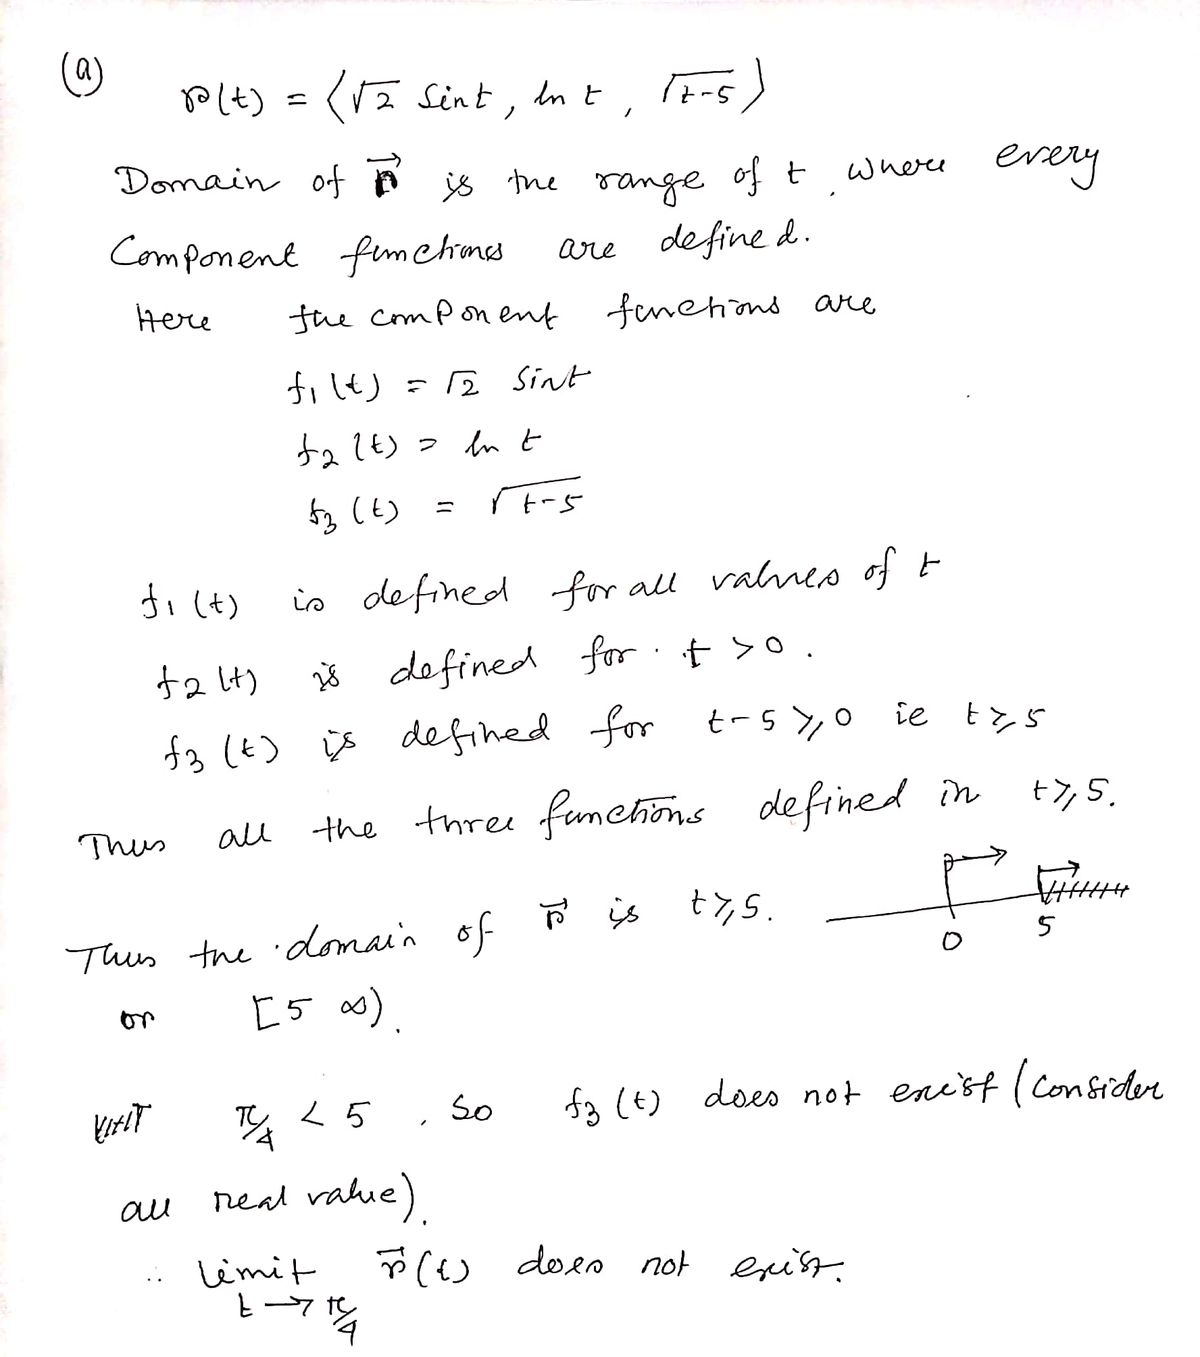 (a)
r(t) = ⟨√2 Sint, ln t, √t-5⟩
Domain of r⃗ is the range of t where every
Component functions are defined.
Here the component functions are
f₁(t) = √2 Sint
f₂(t) = ln t
f₃(t) = √t-5
f₁(t) is defined for all values of t
f₂(t) is defined for t > 0.
f₃(t) is defined for t-5 ≥ 0 ie t ≥ 5
Thus all the three functions defined in t ≥ 5.
Thus the domain of r⃗ is t ≥ 5.
0 5
or [5 ∞).
π/4 < 5, So f₃(t) does not exist (Consider
all real value).
∴ limit r⃗(t) does not exist.
t → π/4